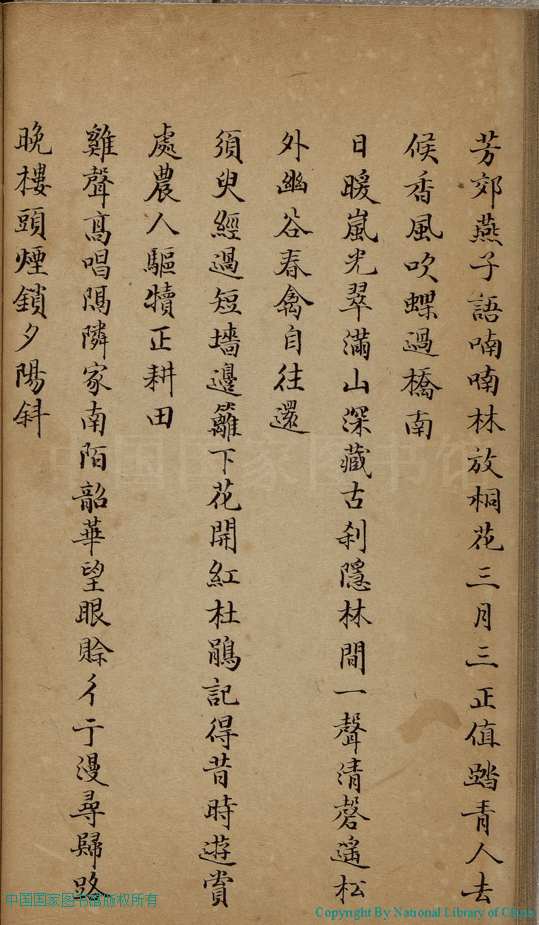 芳郊燕子語喃喃林放桐花三月三正值踏青人去
候香風吹蝶過橋南
日暖嵐光翠滿山深藏古刹隱林間一聲清磬遙松
外幽谷春禽自往還
須臾經過短墻邊籬下花開紅杜鵑記得昔時遊賞
處農人驅犢正耕田
雞聲高唱隔隣家南陌韶華望眼賒彳亍漫尋歸路
晚樓頭煙鎖夕陽斜
中国国家图书馆
中国国家图书馆版权所有
Copyright By National Library of China